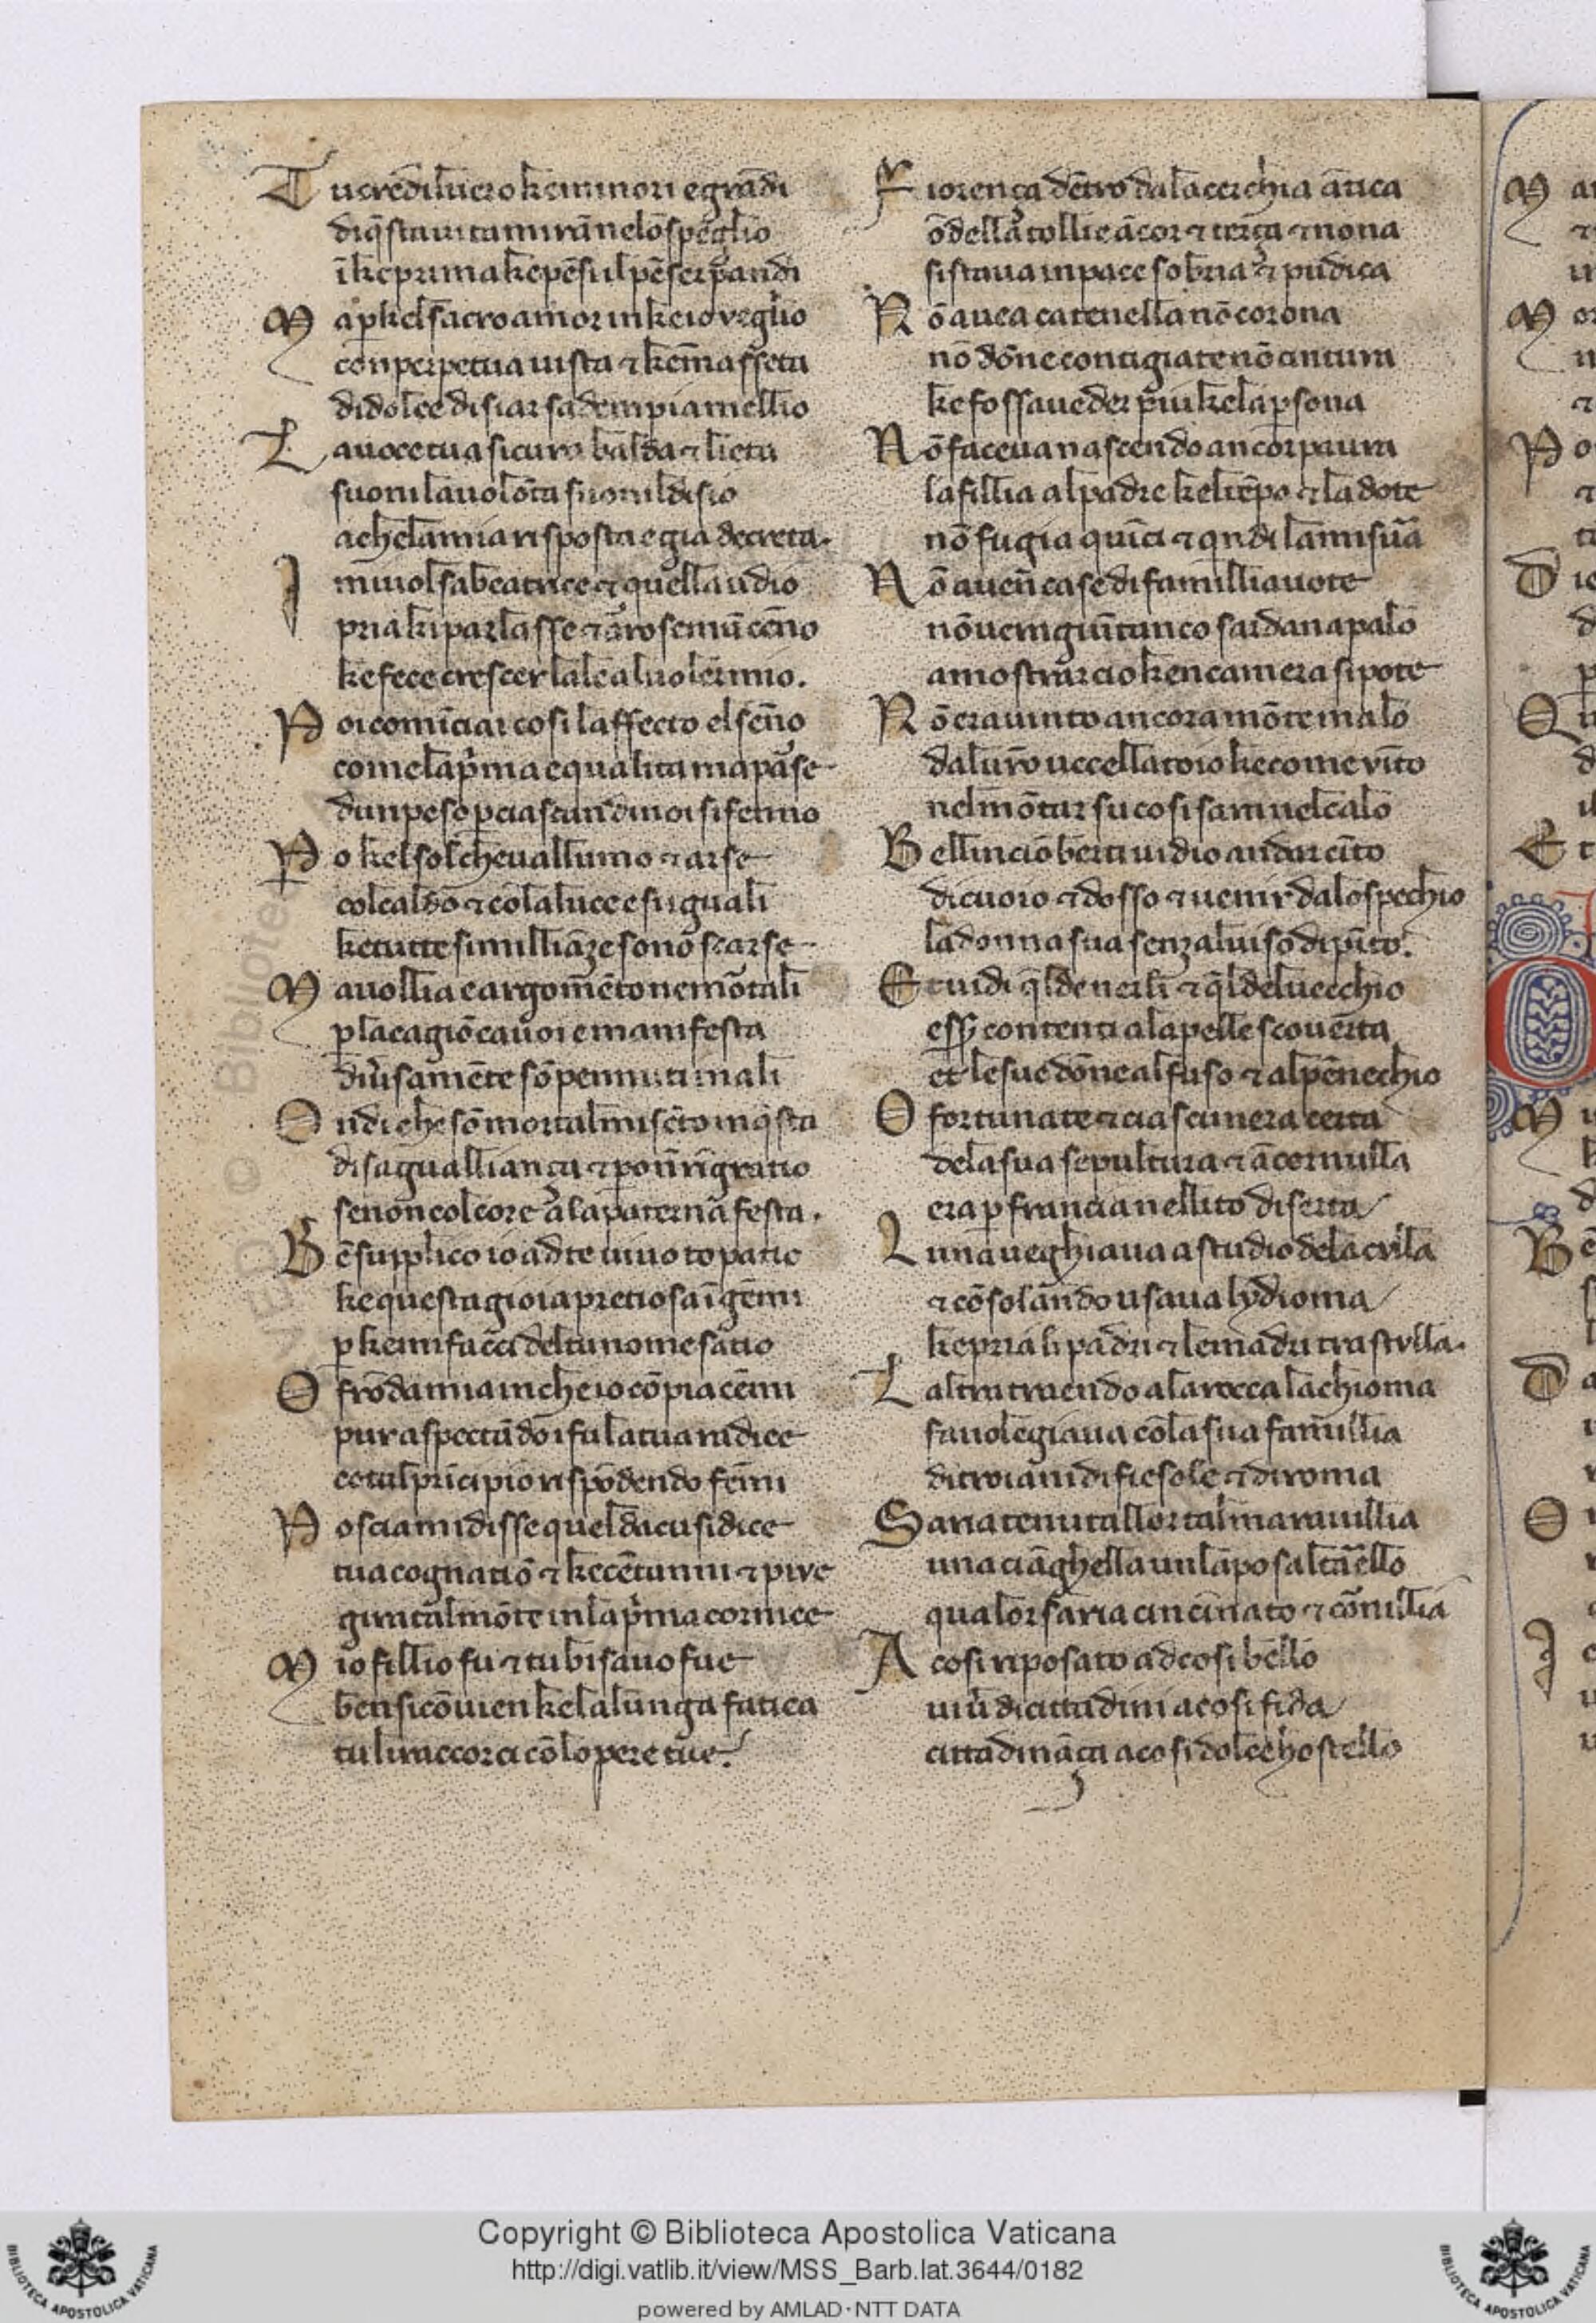 Tu credi luero ke minori e grādi
di q̄sta uita mirā nelo speglio
ī ke prima ke pēsi il pēser pandi
Ma p kel sacro amor in ke io veglio
con perpetua uista ⁊ ke m asseta
di dolce disiar s adempia mellio
La uoce tua sicura balda ⁊ lieta
suoni la uolōta suoni l disio
a che la mia risposta e gia decreta.
I mi uolsi a beatrice ⁊ quella udio
pria ki parlasse ⁊ arosemi ū cēno
ke fece crescer l ale al uoler mio.
Poi comīciai cosi l affecto el sēno
come la p̄ma equalita m apāse
d un peso p ciascun di noi si fenno
Po kel sol che u allumo ⁊ arse
col caldo ⁊ cō la luce e si iguali
ke tutte simillianze sono scarse
Ma uollia e argomēto ne mortali
p la cagiō ca uoi e manifesta
diu̓samēte sō pennuti in ali
Ond i che sō mortal mi sēto in q̄sta
disagualliança ⁊ po nō rīgratio
se non col core a la paterna festa.
Bē supplico io ad te uiuo topatio
ke questa gioia pretiosa īgēmi
p ke mi facci del tu nome satio
O frōda mia in che io cōpiacēmi
pur aspectādo i fu la tua radice
cotal prīcipio rispōdendo fēmi
Poscia mi disse quel da cu si dice
tua cognatiō ⁊ ke cēt anni ⁊ piue
girat al mōte in la p̄ma cornice
Mio fillio fu ⁊ tu bisauo fue
ben si cōuien ke la lunga fatica
tu li raccorci cō l opere tue.
Fiorença dētro da la cerchia ātica
ōd ella tollie ācor ⁊ terça ⁊ nona
si staua in pace sobria ⁊ pudica
Nō auea catenella nō corona
nō dōne contigiate nō cintura
ke fossa ueder piu ke la psona
Nō faceua nascendo ancor paura
la fillia al padre kel tēpo ⁊ la dote
nō fugia quīci ⁊ qndi la misura
Nō auen case di famillia uote
nō u era giūt anco sardanapalo
a mostrar cio ken camera si pote
Nō era uinto ancora mōte malo
dal uro uccellatoio ke come vīto
nel mōtar su cosi sara nel calo
Bellinciō berti uid io andar cīto
di cuoio ⁊ d osso ⁊ uenir da lo spechio
la donna sua senza l uiso dipīto.
Et uidi q̄l de nerli ⁊ q̄l del uecchio
ess̄ contenti a la pelle scouerta
et le sue dōne al fuso ⁊ al pēnechio
O fortunate ⁊ ciascun era certa
de la sua sepultura ⁊ ācor nulla
era p francia nel lito diserta
L una ueghiaua a studio de la cvlla
⁊ cōsolando usaua lydioma
ke pria li padri ⁊ le madri trastvlla.
L altra traendo a la rocca la chioma
fauolegiaua cō la sua famillia
di troiani di fiesole ⁊ di roma
Saria tenuta llor tal marauillia
una ciāghella un lapo saltarello
qual or saria cincīnato ⁊ cōrnillia
A cosi riposato ad cosi bello
uiu̓ di cittadini a cosi fida
cittadināça a cosi dolce hostello
Copyright © Biblioteca Apostolica Vaticana
http://digi.vatlib.it/view/MSS_Barb.lat.3644/0182
powered by AMLAD·NTT DATA
BIBLIOTECA APOSTOLICA VATICANA
BIBLIOTECA APOSTOLICA VATICANA